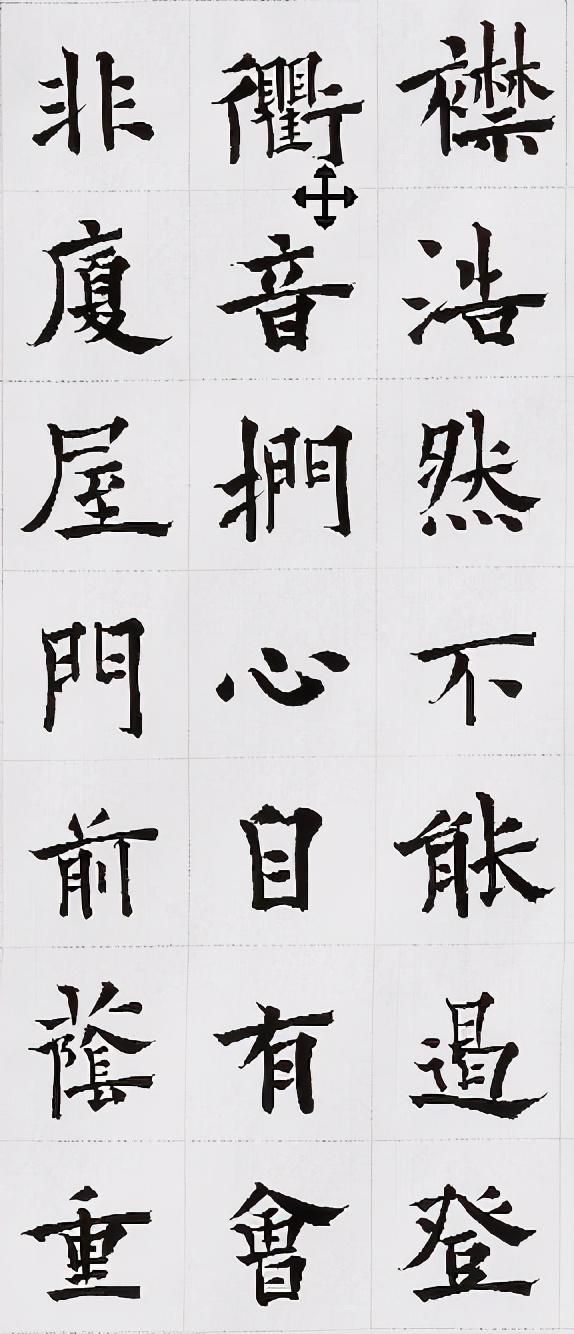 襟浩然不能遏登
衢音捫心自有會
非廈屋門前蔭重